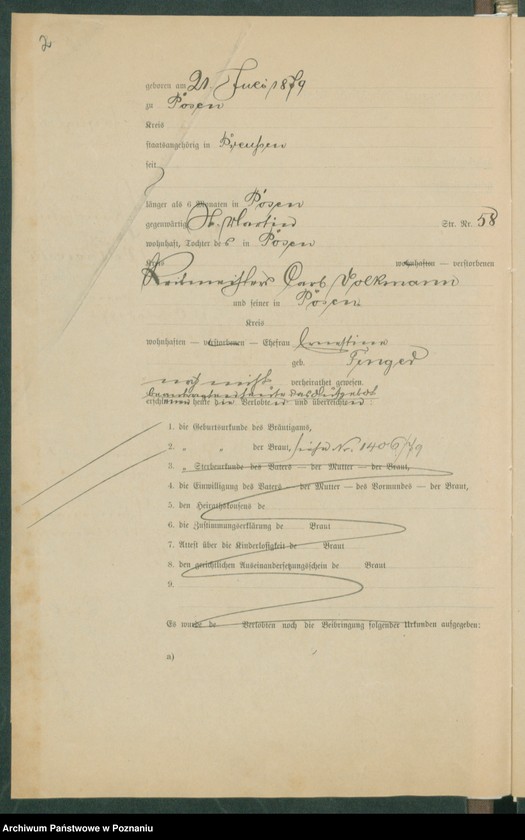 2
geboren am 21 Juli 1879
zu Posen
Kreis
staatsangehörig in Preußen
seit
länger als 6 Monaten in Posen
gegenwärtig St. Martin Str. Nr. 58
wohnhaft, Tochter des in Posen
Kreis wohnhaften — verstorbenen
Carl Volkmann
und seiner in Posen
Kreis
wohnhaften — verstorbenen — Ehefrau Ernestine
geb.
noch nicht verheirathet gewesen.
erschienen heute die Verlobten und überreichten:
1. die Geburtsurkunde des Bräutigams,
2. „ „ der Braut, siehe Nr. 1406/79
3. „ Sterbeurkunde des Vaters — der Mutter — der Braut,
4. die Einwilligung des Vaters — der Mutter — des Vormundes — der Braut,
5. den Heirathskonsens de
6. die Zustimmungserklärung de Braut
7. Attest über die Kinderlosigkeit de Braut
8. den gerichtlichen Auseinandersetzungsschein de Braut
9.
Es wurde de Verlobten noch die Beibringung folgender Urkunden aufgegeben:
a)
Archiwum Państwowe w Poznaniu